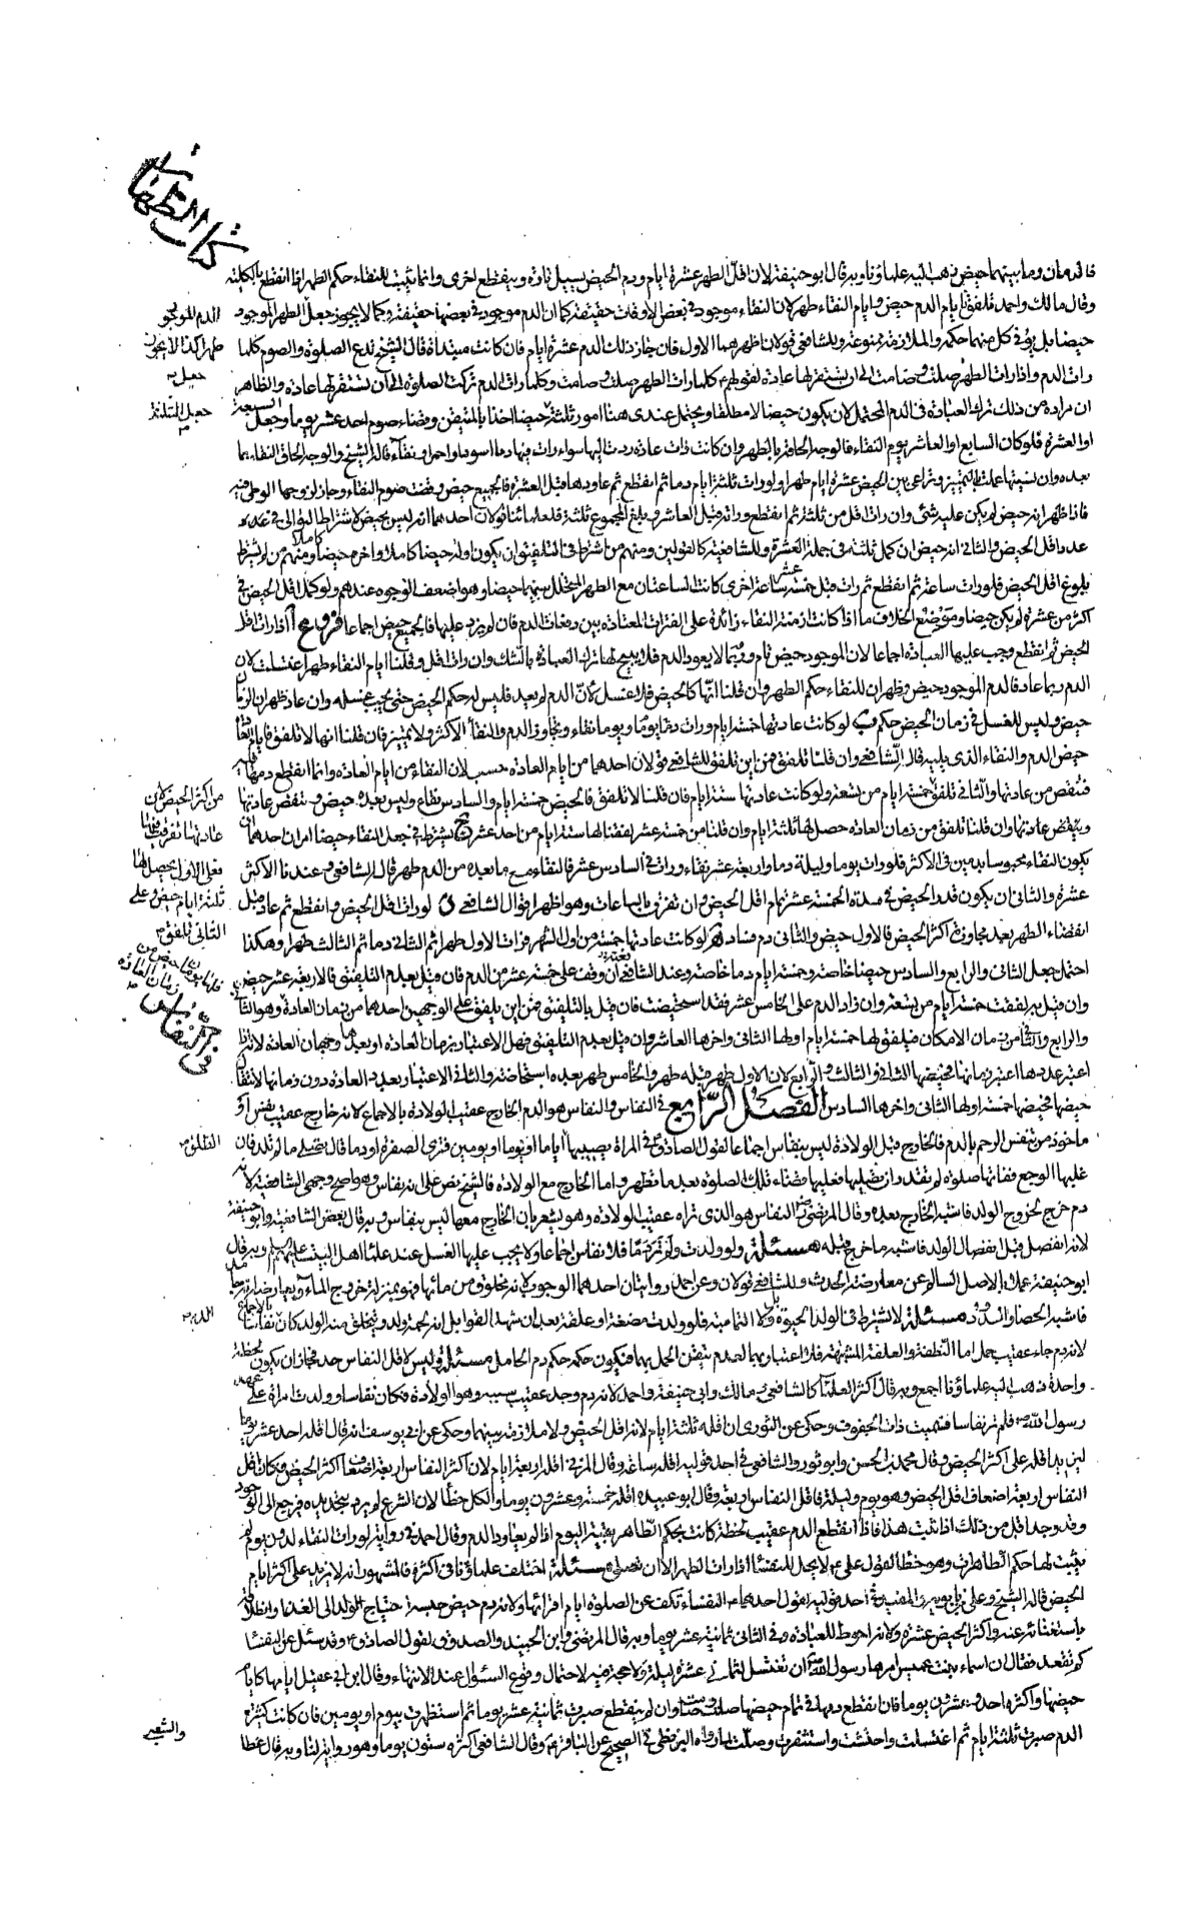 كتاب الطهارة
فالدمان وما بينهما حيض ذهب اليه علماؤنا وبه قال ابو حنيفة لان اقل الطهر عشرة ايام ودم الحيض يسيل تارة وينقطع اخرى وانما يثبت للنقاء حكم الطهر اذا انقطع بالكلية
وقال مالك واحمد تلفق ايام الدم حيض وايام النقاء طهر لان النقاء موجود في بعض الاوقات حقيقة كما ان الدم موجود في بعضها حقيقة وكما لا يجوز جعل الطهر الموجود
حيضا بل يوفى كل منهما حكمه والملازمة ممنوعة وللشافعي قولان اظهرهما الاول فان جاز ذلك الدم عشرة ايام فان كانت مبتدأة قال الشيخ تدع الصلوة والصوم كلما
رات الدم واذا رات الطهر صلت وصامت الى ان يستقر لها عادة لقولهم ع كلما رات الطهر صلت وصامت وكلما رات الدم تركت الصلوة الى ان تستقر لها عادة والظاهر
ان مراده من ذلك ترك العبادة في الدم المحتمل لان يكون حيضا لا مطلقا ويحتمل عندي هنا امور ثلثة حيضا اخذا بالمتيقن وقضاء صوم احد عشر يوما وجعل السبعة
او العشرة فلو كان السابع او العاشر يوم النقاء فالوجه الحاقه بالطهر وان كانت ذات عادة ردت اليها سواء رات فيها دما اسود او احمر او نقاء قاله الشيخ والوجه الحاق النقاء بما
بعده وان نسيتها عملت بالتمييز وتراعي بين الحيض عشرة ايام طهر ولو رات ثلثة ايام دما ثم انقطع ثم عاودها قبل العشرة فالجميع حيض وقضت صوم النقاء وجاز لزوجها الوطي فيه
فاذا ظهر انه حيض لم يكن عليه شئ وان رات اقل من ثلثة ثم انقطع وراته قبل العاشر وبلغ المجموع ثلثة فلعلمائنا قولان احدهما انه ليس بحيض لاشتراط التوالي في عدد
عدد اقل الحيض والثاني انه حيض ان كمل ثلثة في جملة العشرة وللشافعية كالقولين ومنهم من اشترط في التلفيق ان يكون اوله حيضا كاملا واخره حيضا كاملا ومنهم من لم يشترط
بلوغ اقل الحيض فلو رات ساعة ثم انقطع ثم رات قبل خمسة عشر ساعة اخرى كانت الساعتان مع الطهر المتخلل بينهما حيضا وهو اضعف الوجوه عندهم ولو كمل اقل الحيض في
اكثر من عشرة لم يكن حيضا وموضع الخلاف ما اذا كانت ازمنة النقاء زائدة على الفترات المعتادة بين دفعات الدم فان لم يزد عليها فالجميع حيض اجماعا فروع ا اذا رات اقل
الحيض ثم انقطع وجب عليها العبادة اجماعا لان الموجود حيض تام وربما لا يعود الدم فلا يبيح لها ترك العبادة بالشك وان رات اقل وقلنا ايام النقاء طهر اغتسلت لان
الدم ربما عاد فالدم الموجود حيض وظهر ان للنقاء حكم الطهر وان قلنا انها كالحيض فلا غسل لان الدم لم يعد فليس له حكم الحيض حتى يجب غسله وان عاد ظهر ان الزمان
حيض وليس للغسل في زمان الحيض حكم ب لو كانت عادتها خمسة ايام ورات دما يوما ويوما نقاء وتجاوز الدم والنقاء الاكثر ولا تمييز فان قلنا انها لا تلفق فايام
حيض الدم والنقاء الذي يليه قاله الشافعي وان قلنا تلفق فمن اين تلفق للشافعي قولان احدهما من ايام العادة حسب لان النقاء من ايام العادة وانما انقطع دمها
فنقص من عادتها والثاني تلفق خمسة ايام من تسعة ولو كانت عادتها ستة ايام فان قلنا لا تلفق فالحيض خمسة ايام والسادس نقاء وليس بعده حيض وتنقص عادتها
وينقص عادتها وان قلنا تلفق من زمان العادة حصل لها ثلثة ايام وان قلنا من خمسة عشر لفقنا لها ستة ايام من احد عشر ج يشترط في جعل النقاء حيضا امران احدهما ان
يكون النقاء محبوسا بدمين في الاكثر فلو رات يوما وليلة دما واربعة عشر نقاء ورات في السادس عشر فالنقاء مع ما بعده من الدم طهر قاله الشافعي وعندنا الاكثر
عشرة والثاني ان يكون قدر الحيض في مدة الخمسة عشر تمام اقل الحيض وان تفرق بالساعات وهو اظهر اقوال الشافعي د لو رات اقل الحيض وانقطع ثم عاد قبل
انقضاء الطهر بعد تجاوز اكثر الحيض فالاول حيض والثاني دم فساد ه لو كانت عادتها خمسة من اول الشهر فرات الاول طهرا ثم الثاني دما ثم الثالث طهرا وهكذا
احتمل جعل الثاني والرابع والسادس حيضا خاصة وخمسة ايام دما خاصة وعند الشافعي ان وقف على خمسة عشر من الدم فان قيل بعدم التلفيق فالاربعة عشر حيض
وان قيل به لفقت خمسة ايام من تسعة وان زاد الدم على الخامس عشر فقد استحيضت فان قيل بالتلفيق فمن اين يلفق على الوجهين احدهما من زمان العادة وهو الثاني
والرابع والثاني من زمان الامكان فيلفق لها خمسة ايام اولها الثاني واخرها العاشر وان قيل بعدم التلفيق فهل الاعتبار بزمان العادة او بعددها وجهان العادة لانه
اعتبر عددها اعتبر زمانها فحيضها الثاني والثالث والرابع لان الاول طهر قبله طهر والخامس طهر بعده استحاضة والثاني الاعتبار بعدد العادة دون زمانها لانتقال
حيضها فحيضها خمسة اولها الثاني واخرها السادس الفصل الرابع في النفاس والنفاس هو الدم الخارج عقيب الولادة بالاجماع لانه خارج عقيب نفس او
ماخوذ من تنفس الرحم بالدم فالخارج قبل الولادة ليس بنفاس اجماعا لقول الصادق ع في المراة يصيبها اياما او يوما او يومين فترى الصفرة او دما قال تصلي ما لم تلد فان
غلبها الوجع ففاتها صلوة لم تقدر ان تصليها فعليها قضاء تلك الصلوة بعد ما تطهر واما الخارج مع الولادة فالشيخ نص على انه نفاس وهو اصح وجهي الشافعية لانه
دم خرج لخروج الولد فاشبه الخارج بعده وقال المرتضى رض النفاس هو الذي تراه عقيب الولادة وهو يشعر بان الخارج معها ليس بنفاس وبه قال بعض الشافعية وابو حنيفة
لانه انفصل قبل انفصال الولد فاشبه ما خرج قبله مسئلة ولو ولدت ولم تر دما فلا نفاس اجماعا ولا يجب عليها الغسل عند علماء اهل البيت عليهم السلم وبه قال
ابو حنيفة عملا بالاصل السالم عن معارضة الحدث وللشافعي قولان وعن احمد روايتان احدهما الوجوب لانه مخلوق من مائها فهو بمنزلة خروج الماء
فاشبه الحصا والدود مسئلة لا يشترط في الولد الحيوة ولا التمامية فلو ولدت مضغة او علقة بعد ان شهد القوابل انه لحمة ولد ويتخلق منه الولد كان نفاسا بالاجماع
لانه دم جاء عقيب حمل اما النطفة والعلقة المشتبهة فلا اعتبار بهما لعدم تيقن الحمل بهما فيكون حكمه حكم دم الحامل مسئلة وليس لاقل النفاس حد فجاز ان يكون لحظة
واحدة ذهب اليه علماؤنا اجمع وبه قال اكثر العلماء كالشافعي ومالك وابي حنيفة واحمد لانه دم وجد عقيب سببه وهو الولادة فكان نفاسا وولدت امراة على عهد
رسول الله ص فلم تر نفاسا فسميت ذات الجفوف وحكي عن الثوري ان اقله ثلثة ايام لانه اقل الحيض ولا ملازمة بينهما وحكى عن ابي يوسف انه قال اقله احد عشر يوما
ليزيد اقله على اكثر الحيض وقال محمد بن الحسن وابو ثور والشافعي في احد قوليه اقله ساعة وقال المزني اقله اربعة ايام لان اكثر النفاس اربعة اضعاف اكثر الحيض فكان اقل
النفاس اربعة اضعاف اقل الحيض وهو يوم وليلة فاقل النفاس اربعة وقال ابو عبيد اقله خمسة وعشرون يوما والكل خطأ لان الشرع لم يرد بتحديده فيرجع الى الوجود
وقد وجد اقل من ذلك اذا ثبت هذا فاذا انقطع الدم عقيب لحظة كانت بحكم الطاهر بقية اليوم اذا لم يعاود الدم وقال احمد في رواية لو رات النقاء لدون يوم لم
يثبت لها حكم الطاهرات وهو خطأ لقول علي ع لا يحل للنفساء اذا رات الطهر الا ان تصلي مسئلة اختلف علماؤنا في اكثره فالمشهور انه لا يزيد على اكثر ايام
الحيض قاله الشيخ وعلي بن بابويه والمفيد في احد قوليه لقول احدهما ع النفساء تكف عن الصلوة ايام اقرائها ولانه دم حيض حبسه احتياج الولد الى الغذاء وانطلاقه
باستغنائه عنه واكثر الحيض عشرة ولانه احوط للعبادة وفي الثاني ثمانية عشر يوما وبه قال المرتضى وابن الجنيد والصدوق لقول الصادق ع وقد سئل عن النفساء
كم تقعد فقال ان اسماء بنت عميس امرها رسول الله ص ان تغتسل لثماني عشرة ليلة ولا حجة فيه لاحتمال وقوع السؤال عند الانتهاء وقال ابن ابي عقيل ايامها كايام
حيضها واكثره احد وعشرون يوما فان انقطع دمها في تمام حيضها صلت وصامت وان لم ينقطع صبرت ثمانية عشر يوما ثم استظهرت بيوم او يومين فان كانت كثيرة
الدم صبرت ثلثة ايام ثم اغتسلت واحتشت واستثفرت وصلت لما رواه البزنطي في الصحيح عن الباقر ع وقال الشافعي اكثره ستون يوما وهو رواية لنا وبه قال عطا
الدم الموجود
طهرا كذا لا يجوز
جعل
من اكثر الحيض كان
عادتها
فعلى الاول يحصل لها
ثلثة ايام حيض وعلى
الثاني تلفق
في النفاس
الطلق
والشعبي